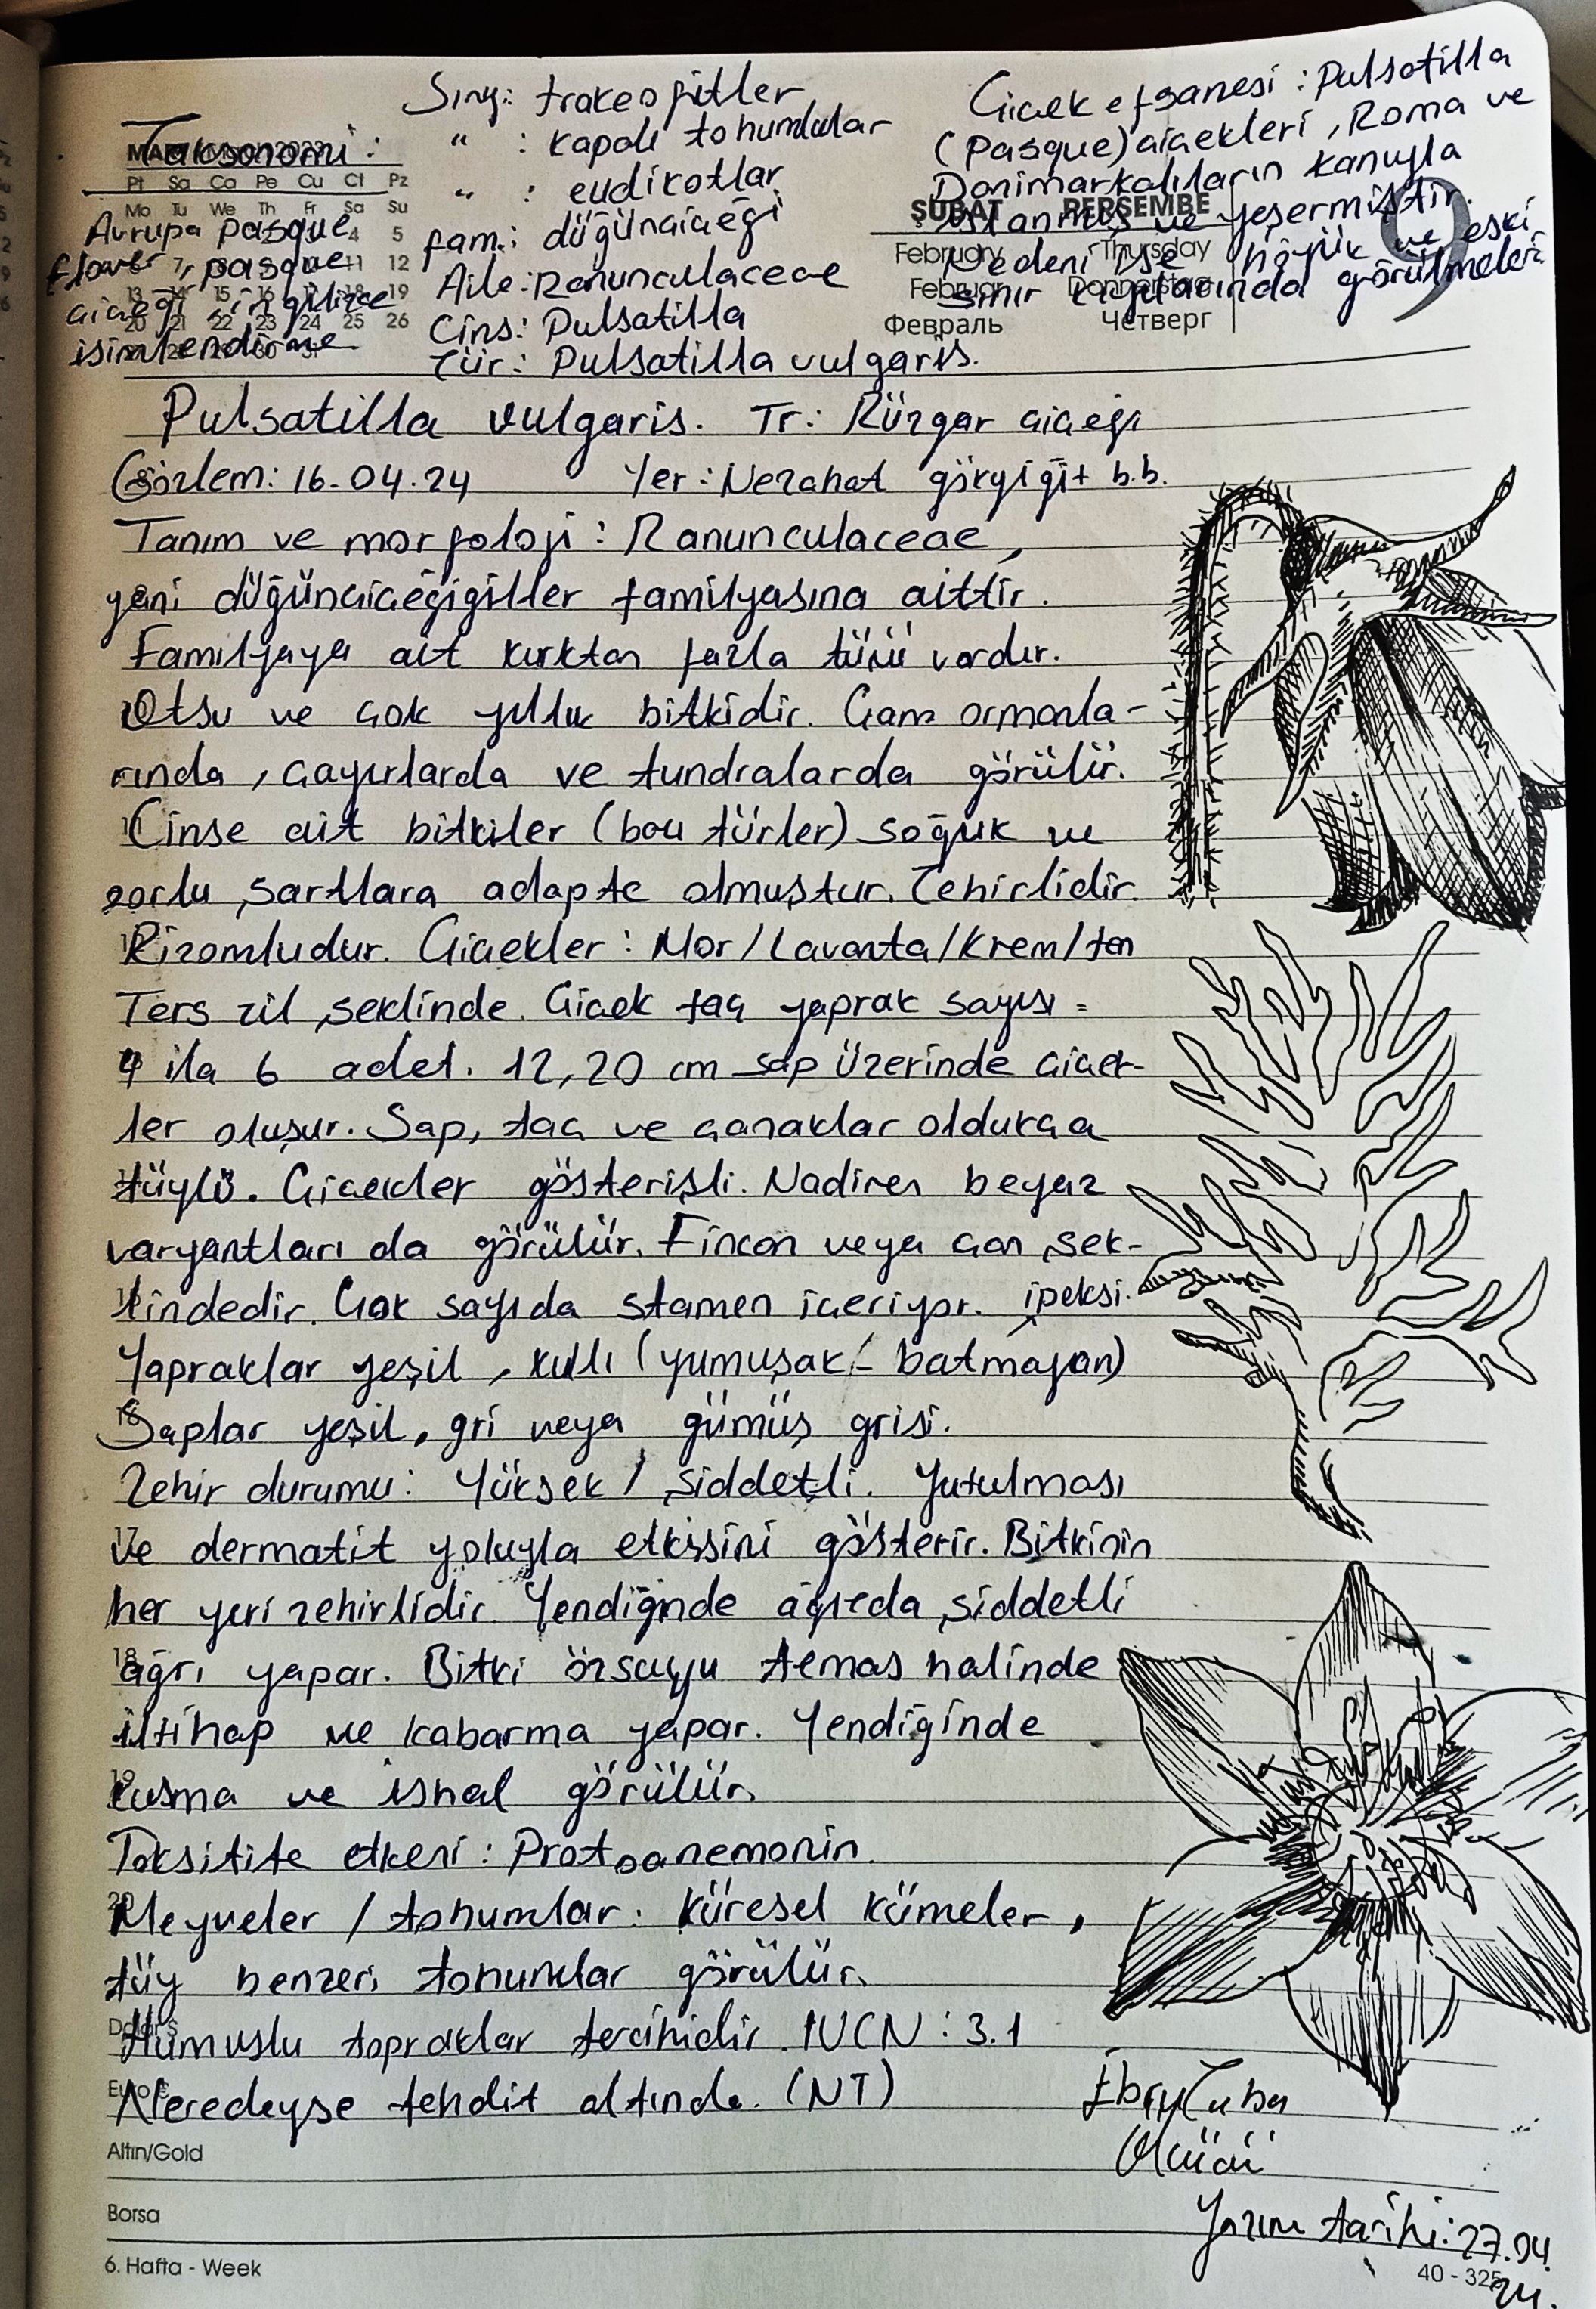 Taksonomi:
Avrupa pasque
flower, pasque
çiçeği ingilizce
isimlendirme
Sınıf: trakeofitler
" : kapalı tohumlular
" : eudikotlar
fam.: düğünçiçeği
Aile: Ranunculaceae
Cins: Pulsatilla
Tür: Pulsatilla vulgaris.
Çiçek efsanesi: Pulsatilla
(Pasque) çiçekleri, Roma ve
Danimarkalıların kanıyla
ıslanmış ve yeşermiştir.
Nedeni ise höyük ve eski
sınır
görülmeleri
Pt Sa Ça Pe Cu Ct Pz
Mo Tu We Th Fr Sa Su
4 5
7 11 12
13 14 15 16 17 18 19
20 21 22 23 24 25 26
30 31
ŞUBAT PERŞEMBE 9
February Thursday
Februar Donnerstag
Февраль Четверг
Pulsatilla vulgaris. Tr: Rüzgar çiçeği
Gözlem: 16.04.24 Yer: Nezahat gökyiğit b.b.
Tanım ve morfoloji: Ranunculaceae,
yani düğünçiçeğigiller familyasına aittir.
Familyaya ait kırktan fazla türü vardır.
Otsu ve çok yıllık bitkidir. Çam ormanla-
rında, çayırlarda ve tundralarda görülür.
Cinse ait bitkiler (bazı türler) soğuk ve
zorlu şartlara adapte olmuştur. Zehirlidir.
Rizomludur. Çiçekler: Mor/Lavanta/Krem/ten
Ters zil şeklinde. Çiçek taç yaprak sayısı =
4 ila 6 adet. 12,20 cm sap üzerinde çiçek-
ler oluşur. Sap, taç ve çanaklar oldukça
tüylü. Çiçekler gösterişli. Nadiren beyaz
varyantları da görülür. Fincan veya çan şek-
lindedir. Çok sayıda stamen içeriyor. ipeksi.
Yapraklar yeşil, kıllı (yumuşak - batmayan)
Saplar yeşil, gri veya gümüş grisi.
Zehir durumu: Yüksek / şiddetli. Yutulması
ve dermatit yoluyla etkisini gösterir. Bitkinin
her yeri zehirlidir. Yendiğinde ağızda şiddetli
ağrı yapar. Bitki özsuyu temas halinde
iltihap ve kabarma yapar. Yendiğinde
kusma ve ishal görülür.
Toksitite etkeni: Protoanemonin.
Meyveler / tohumlar: küresel kümeler,
tüy benzeri tohumlar görülür.
Humuslu topraklar tercihidir. IUCN: 3.1
Neredeyse tehdit altında. (NT)
Ebru Tuba
Ölçücü
Yazım tarihi: 27.04.
24.
Altın/Gold
Borsa
6. Hafta - Week
40 - 325